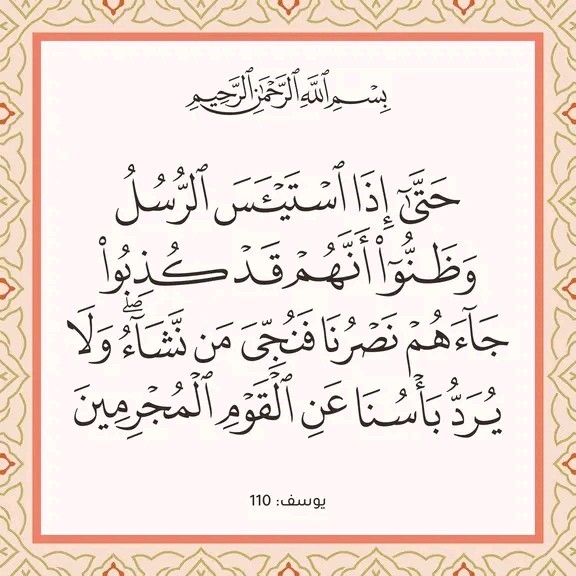 بِسْمِ ٱللَّهِ ٱلرَّحْمَٰنِ ٱلرَّحِيمِ
حَتَّىٰٓ إِذَا ٱسْتَيْـَٔسَ ٱلرُّسُلُ
وَظَنُّوٓا۟ أَنَّهُمْ قَدْ كُذِبُوا۟
جَآءَهُمْ نَصْرُنَا فَنُجِّىَ مَن نَّشَآءُ ۖ وَلَا
يُرَدُّ بَأْسُنَا عَنِ ٱلْقَوْمِ ٱلْمُجْرِمِينَ
يوسف: 110